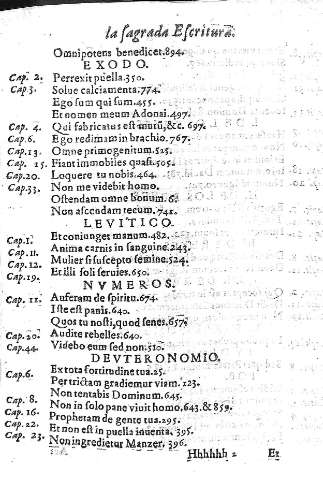 la sagrada Escritura.
Omnipotens benedicet.894.
EXODO.
Cap. 2. Perrexit puella.350.
Cap 3. Solue calciamenta.774.
Ego sum qui sum.455.
Et nomen meum Adonai.497.
Cap. 4. Qui fabricatus est mutũ,&c. 697.
Cap.6. Ego redimam in brachio.767.
Cap.13. Omne primogenitum.525.
Cap. 15. Fiant immobiles quasi.505.
Cap.20. Loquere tu nobis.464.
Cap.33. Non me videbit homo.
Ostendam omne bonum.6.
Non ascendam tecum.741.
LEVITICO.
Cap.1. Et coniunget manum.482.
Cap.11. Anima carnis in sanguine.243.
Cap.12. Mulier si suscepto semine.524.
Cap.19. Et illi soli seruies.650.
NVMEROS.
Cap. 11. Auferam de spiritu.674.
Iste est panis.640.
Quos tu nosti,quod senes.657.
Cap.20. Audite rebelles.640.
Cap.44. Videbo eum sed non.510.
DEVTERONOMIO.
Cap.6. Ex tota fortitudine tua.25.
Per tritam gradiemur viam.123.
Cap. 8. Non tentabis Dominum.645.
Non in solo pane viuit homo.643.& 859.
Cap. 16. Prophetam de gente tua.295.
Cap. 22. Et non est in puella inuenta.395.
Cap. 23. Non ingredietur Manzer. 396.
Hhhhhh 2 Et